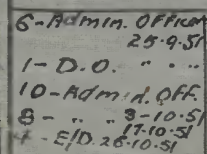 6-Admin. Officer
25.9.51
1-D.O. " " "
10-Admin. Off.
8- " " 3-10.51
17.10.51
E/D. 26.10.51